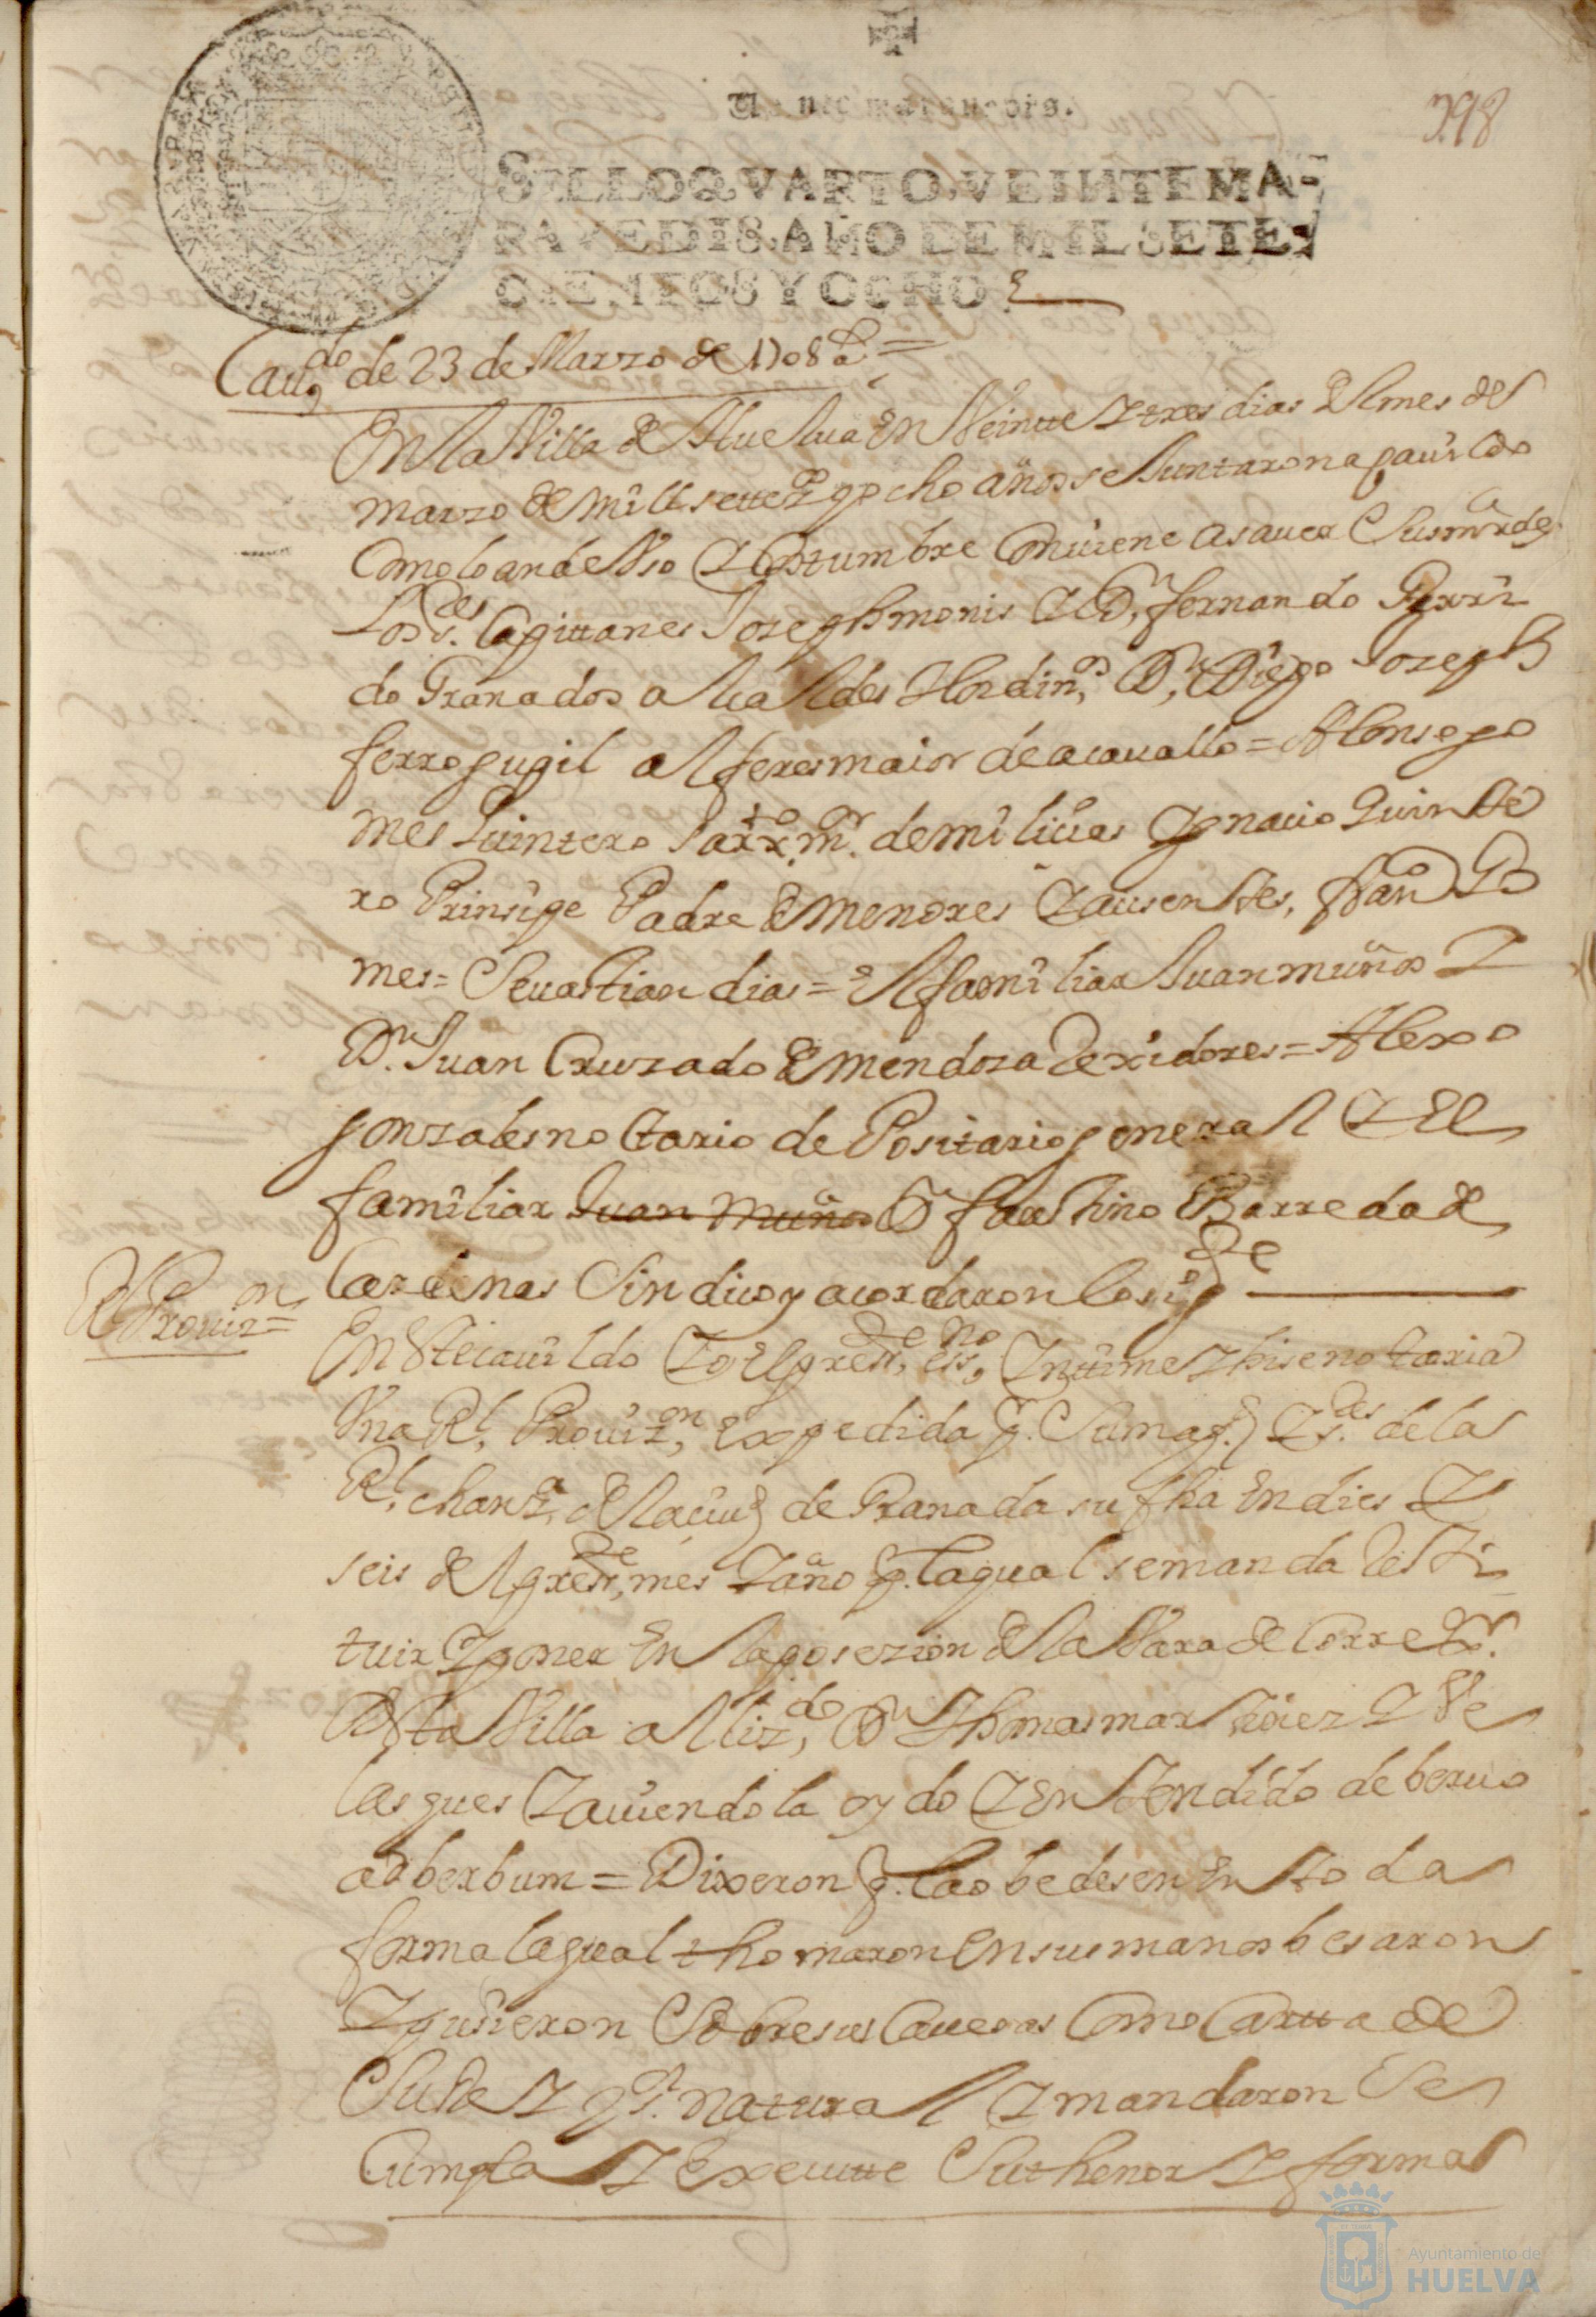 398
Veinte maravedis.
SELLO QVARTO, VEINTE MA-
RAVEDIS, AÑO DE MIL SETE-
CIENTOS Y OCHO.
Cauᵈᵒ de 23 de Marzo de 1708 aˢ =
En la Villa de Huelua En Veintte Y tres dias del mes de
marzo de mill settezˢ y ocho años se Juntaron a cauildo
Como lo an de Vso Y Costumbre Conuiene a sauer Sus mrᵈᵉˢ
Los sᵉˢ Capittanes Joseph monis Y Dⁿ fernando Garri
do Granados alcaldes Hordinˢ, Dⁿ Diego Joseph
ferro pugil alferes maior de acauallo = Alonso go
mes quintero sarxᵗᵒ mʳ de milicias Ygnacio Quinte
ro Prinsipe Padre de Menores Y ausentes, franᶜᵒ Go
mes = Seuastian dias = el familiar Juan muños Y
Dⁿ Juan Cruzado de Mendoza Rexidores = Alexo
gonzales no ttario de Positario general Y El
familiar Juan Muños D faustino Barreda de
Cardenas Sindico y acordaron lo sigᵗᵉ
Rˡ Prouizᵒⁿ =
En Ste cauildo Yo El presᵗᵉ essⁿᵒ, Ynttime Y hise notoria
Vna Rˡ Prouizᵒⁿ, Expedida p. Su magᵈ Y sʳᵉˢ de la
Rˡ chanzᵃ de la ciuᵈ de Granada su fha En dies Y
seis del presᵗᵉ mes Y año p. la qual se manda Resti
tuir Y poner En la posezion de la Vara de Correxᵒʳ
desta Villa al lizᵈᵒ Dⁿ Thomas martinez Y Ve
lasques Y auiendola oydo Y Entendido de beruo
ad berbum = Dixeron q. la obedesen En toda
forma la qual thomaron en sus manos besaron
Y pusieron Sobre sus Cauesas Como Cartta de
Su Re Y sʳ natural Y mandaron Se
Cumpla Y Execute Su thenor Y forma
Ayuntamiento de
HUELVA